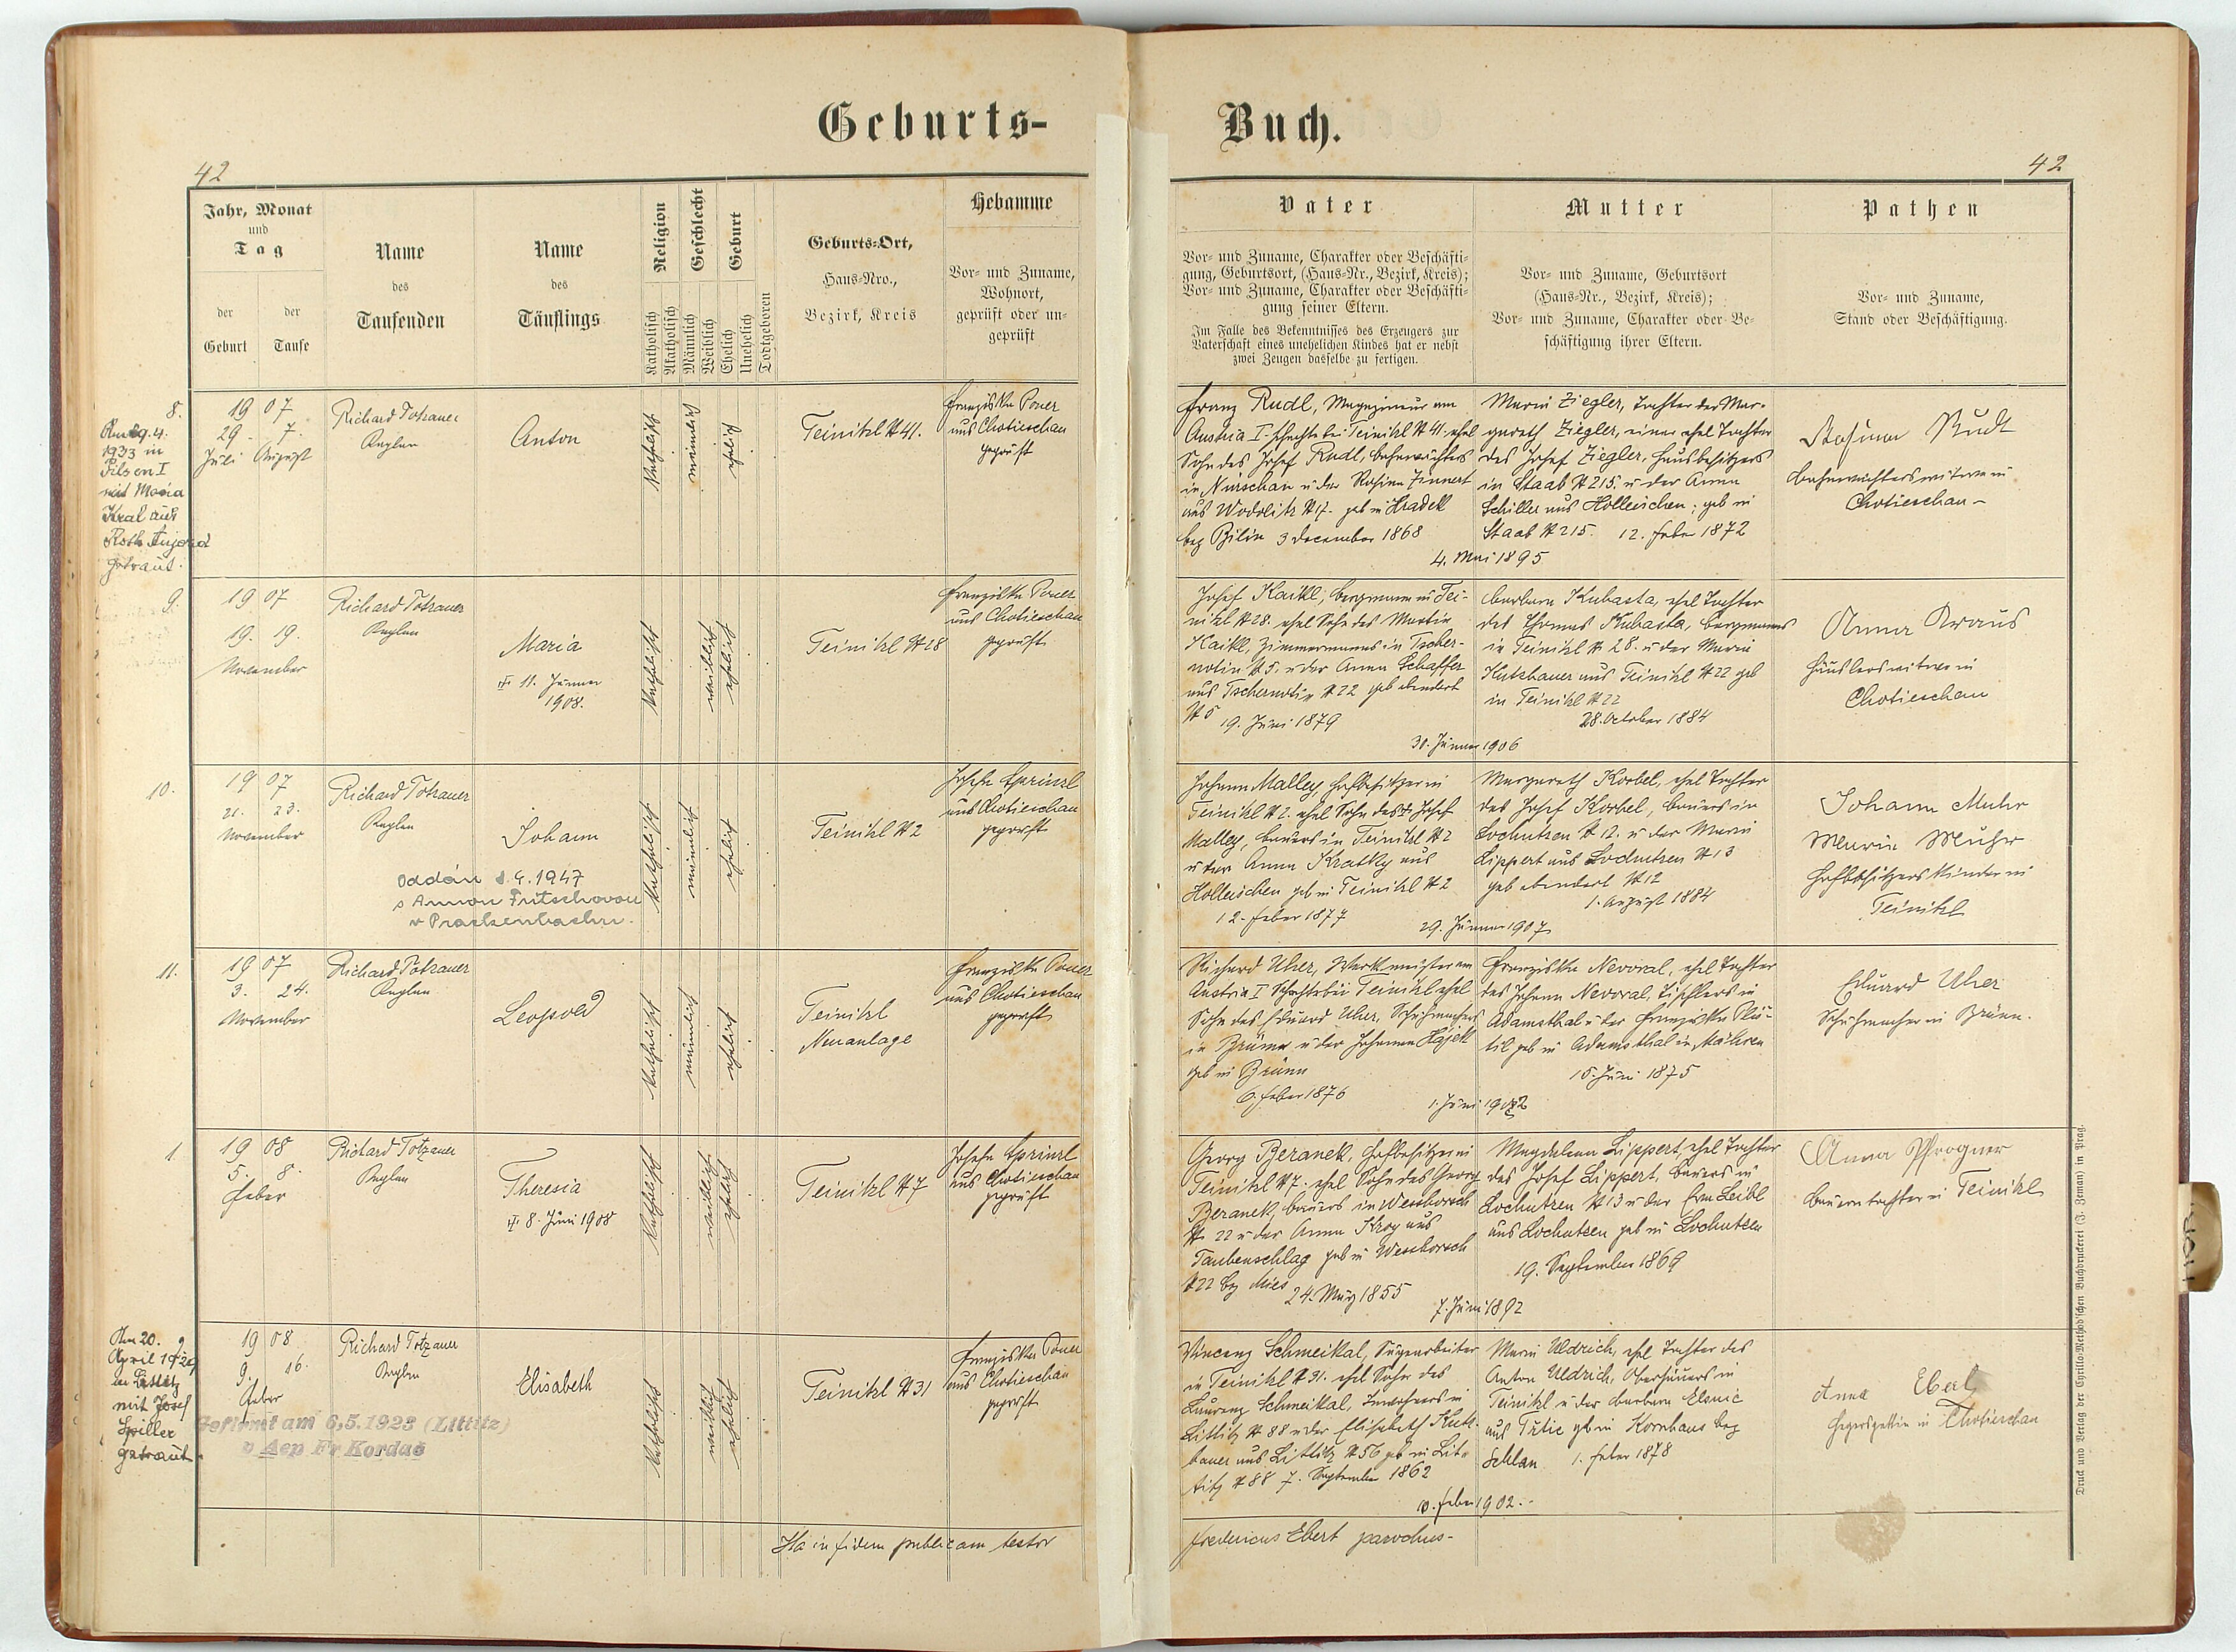 Geburts-
Buch.
42
42
Jahr, Monat
und
Tag
der
Geburt
der
Taufe
Name
des
Taufenden
Name
des
Täuflings
Religion
Katholisch
Akatholisch
Geschlecht
Männlich
Weiblich
Geburt
Ehelich
Unehelich
Todtgeboren
Geburts-Ort,
Haus-Nro.,
Bezirk, Kreis
Hebamme
Vor- und Zuname,
Wohnort,
geprüft oder un-
geprüft
Vater
Vor- und Zuname, Charakter oder Beschäfti-
gung, Geburtsort, (Haus-Nr., Bezirk, Kreis);
Vor- und Zuname, Charakter oder Beschäfti-
gung seiner Eltern.
Im Falle des Bekenntnisses des Erzeugers zur
Vaterschaft eines unehelichen Kindes hat er nebst
zwei Zeugen dasselbe zu fertigen.
Mutter
Vor- und Zuname, Geburtsort
(Haus-Nr., Bezirk, Kreis);
Vor- und Zuname, Charakter oder Be-
schäftigung ihrer Eltern.
Pathen
Vor- und Zuname,
Stand oder Beschäftigung.
8.
Am 29.4.
1933 in
Pilsen I
mit Maria
Kral aus
getraut.
19 07
29. 7.
Juli August
Richard Totzauer
Kaplan
Anton
katholisch
männlich
ehelich
Teinitzl N 41.
Franziska Poner
aus Chotieschau
geprüft
Franz Rudl, Magazineur am
Austria I. Schachte bei Teinitzl N 41. ehel
Sohn des Josef Rudl, Bahnwächters
in Nürschan u. der Rosina Zinnert
aus Wodolitz N 17. geb in Hradek
bez Bilin 3 December 1868
Maria Ziegler, Tochter der Mar-
gareth Ziegler, einer ehel Tochter
des Josef Ziegler, Hausbesitzers
in Staab N 215. u der Anna
Schiller aus Holleischen; geb in
Staab N 215. 12. Feber 1872
4. Mai 1895
Rosina Rudl
Bahnwächterswitwe in
Chotieschau
9.
19 07
19. 19.
November
Richard Totzauer
Kaplan
Maria
11. Jänner
1908.
katholisch
weiblich
ehelich
Teinitzl N 28
Franziska Poner
aus Chotieschau
geprüft
Josef Kaikl, Bergmann in Tei-
nitzl N 28. ehel Sohn des Martin
Kaikl, Zimmermanns in Tscher-
notin N 5. u der Anna Schaffer
aus Tschernotin N 22 geb ebendort
N 5 19. Juni 1879
Barbara Kubasta, ehel Tochter
des Thomas Kubasta, Bergmanns
in Teinitzl N 28. u der Maria
Kutzbauer aus Teinitzl N 22 geb
in Teinitzl N 22
28. October 1884
30. Jänner 1906
Anna Kraus
Häuslerswitwe in
Chotieschau
10.
19 07
21. 23.
November
Richard Totzauer
Kaplan
Johann
oddán 1.4.1947
s Annou Fritschovou
katholisch
männlich
ehelich
Teinitzl N 2
aus Chotieschau
geprüft
Johann Malley, Hofbesitzer in
Teinitzl N 2. ehel Sohn des Josef
Malley, Bauers in Teinitzl N 2
u der Anna Kratky aus
Holleischen geb in Teinitzl N 2
12. Feber 1877
Margareth Korbel, ehel Tochter
des Josef Korbel, Bauers in
Lochutzen N 12. u der Maria
Lippert aus Lochutzen N 13
geb ebendort N 12
1. August 1884
29. Jänner 1907
Johann Muhr
Maria Muhr
Hofbesitzerskinder in
Teinitzl
11.
19 07
3. 24.
November
Richard Totzauer
Kaplan
Leopold
katholisch
männlich
ehelich
Teinitzl
Neuanlage
Franziska Poner
aus Chotieschau
geprüft
Richard Uher, Werkmeister am
Austria I Schachte bei Teinitzl ehel
Sohn des Eduard Uher, Schuhmachers
in Brünn u der Johanna Hájek
geb in Brünn
6. Feber 1876
Franziska Nevoral, ehel Tochter
des Johann Nevoral, Tischlers in
Adamsthal u der Franziska
geb in Adamsthal in Mähren
15. Juni 1875
1. Juni 1902
Eduard Uher
Schuhmacher in Brünn.
1
19 08
5. 8.
Feber
Richard Totzauer
Kaplan
Theresia
8. Juni 1908
katholisch
weiblich
ehelich
Teinitzl N 7
aus Chotieschau
geprüft
Georg Beranek, Hofbesitzer in
Teinitzl N 7. ehel Sohn des Georg
Beranek, Bauers in Wessborsch
N 22 u der Anna aus
Taubenschlag geb in Wessborsch
N 22 bez Mies 24. März 1855
Magdalena Lippert, ehel Tochter
des Josef Lippert, Bauers in
Lochutzen N 13 u der Eva Leibl
aus Lochutzen geb in Lochutzen
19. September 1869
7. Juni 1892
Anna Pfrogner
Bauerntochter in Teinitzl
2
Am 20.
April 1929
in Littitz
mit Josef
Spiller
getraut.
19 08
9. 16.
Feber
Richard Totzauer
Kaplan
Elisabeth
Gefirmt am 6.5.1923 (Littitz)
v Aep Fr Kordač
katholisch
weiblich
ehelich
Teinitzl N 31
Franziska Poner
aus Chotieschau
geprüft
Vincenz Schmeikal, Sägearbeiter
in Teinitzl N 31. ehel Sohn des
Laurenz Schmeikal, Inwohners in
Littitz N 88 u der Elisabeth Kutz-
bauer aus Littitz N 56 geb in Lit-
titz N 88 7. September 1862
Maria Uldrich, ehel Tochter des
Anton Uldrich, Oberhäuers in
Teinitzl u der Barbara
aus geb in Kornhaus bez
Schlan 1. Feber 1878
10. Feber 1902.
Anna Ebert
in Chotieschau
Ita in fidem publicam testor
Fredericus Ebert parochus
Druck und Verlag der Cyrillo-Method'schen Buchdruckerei (J. Zeman) in Prag.